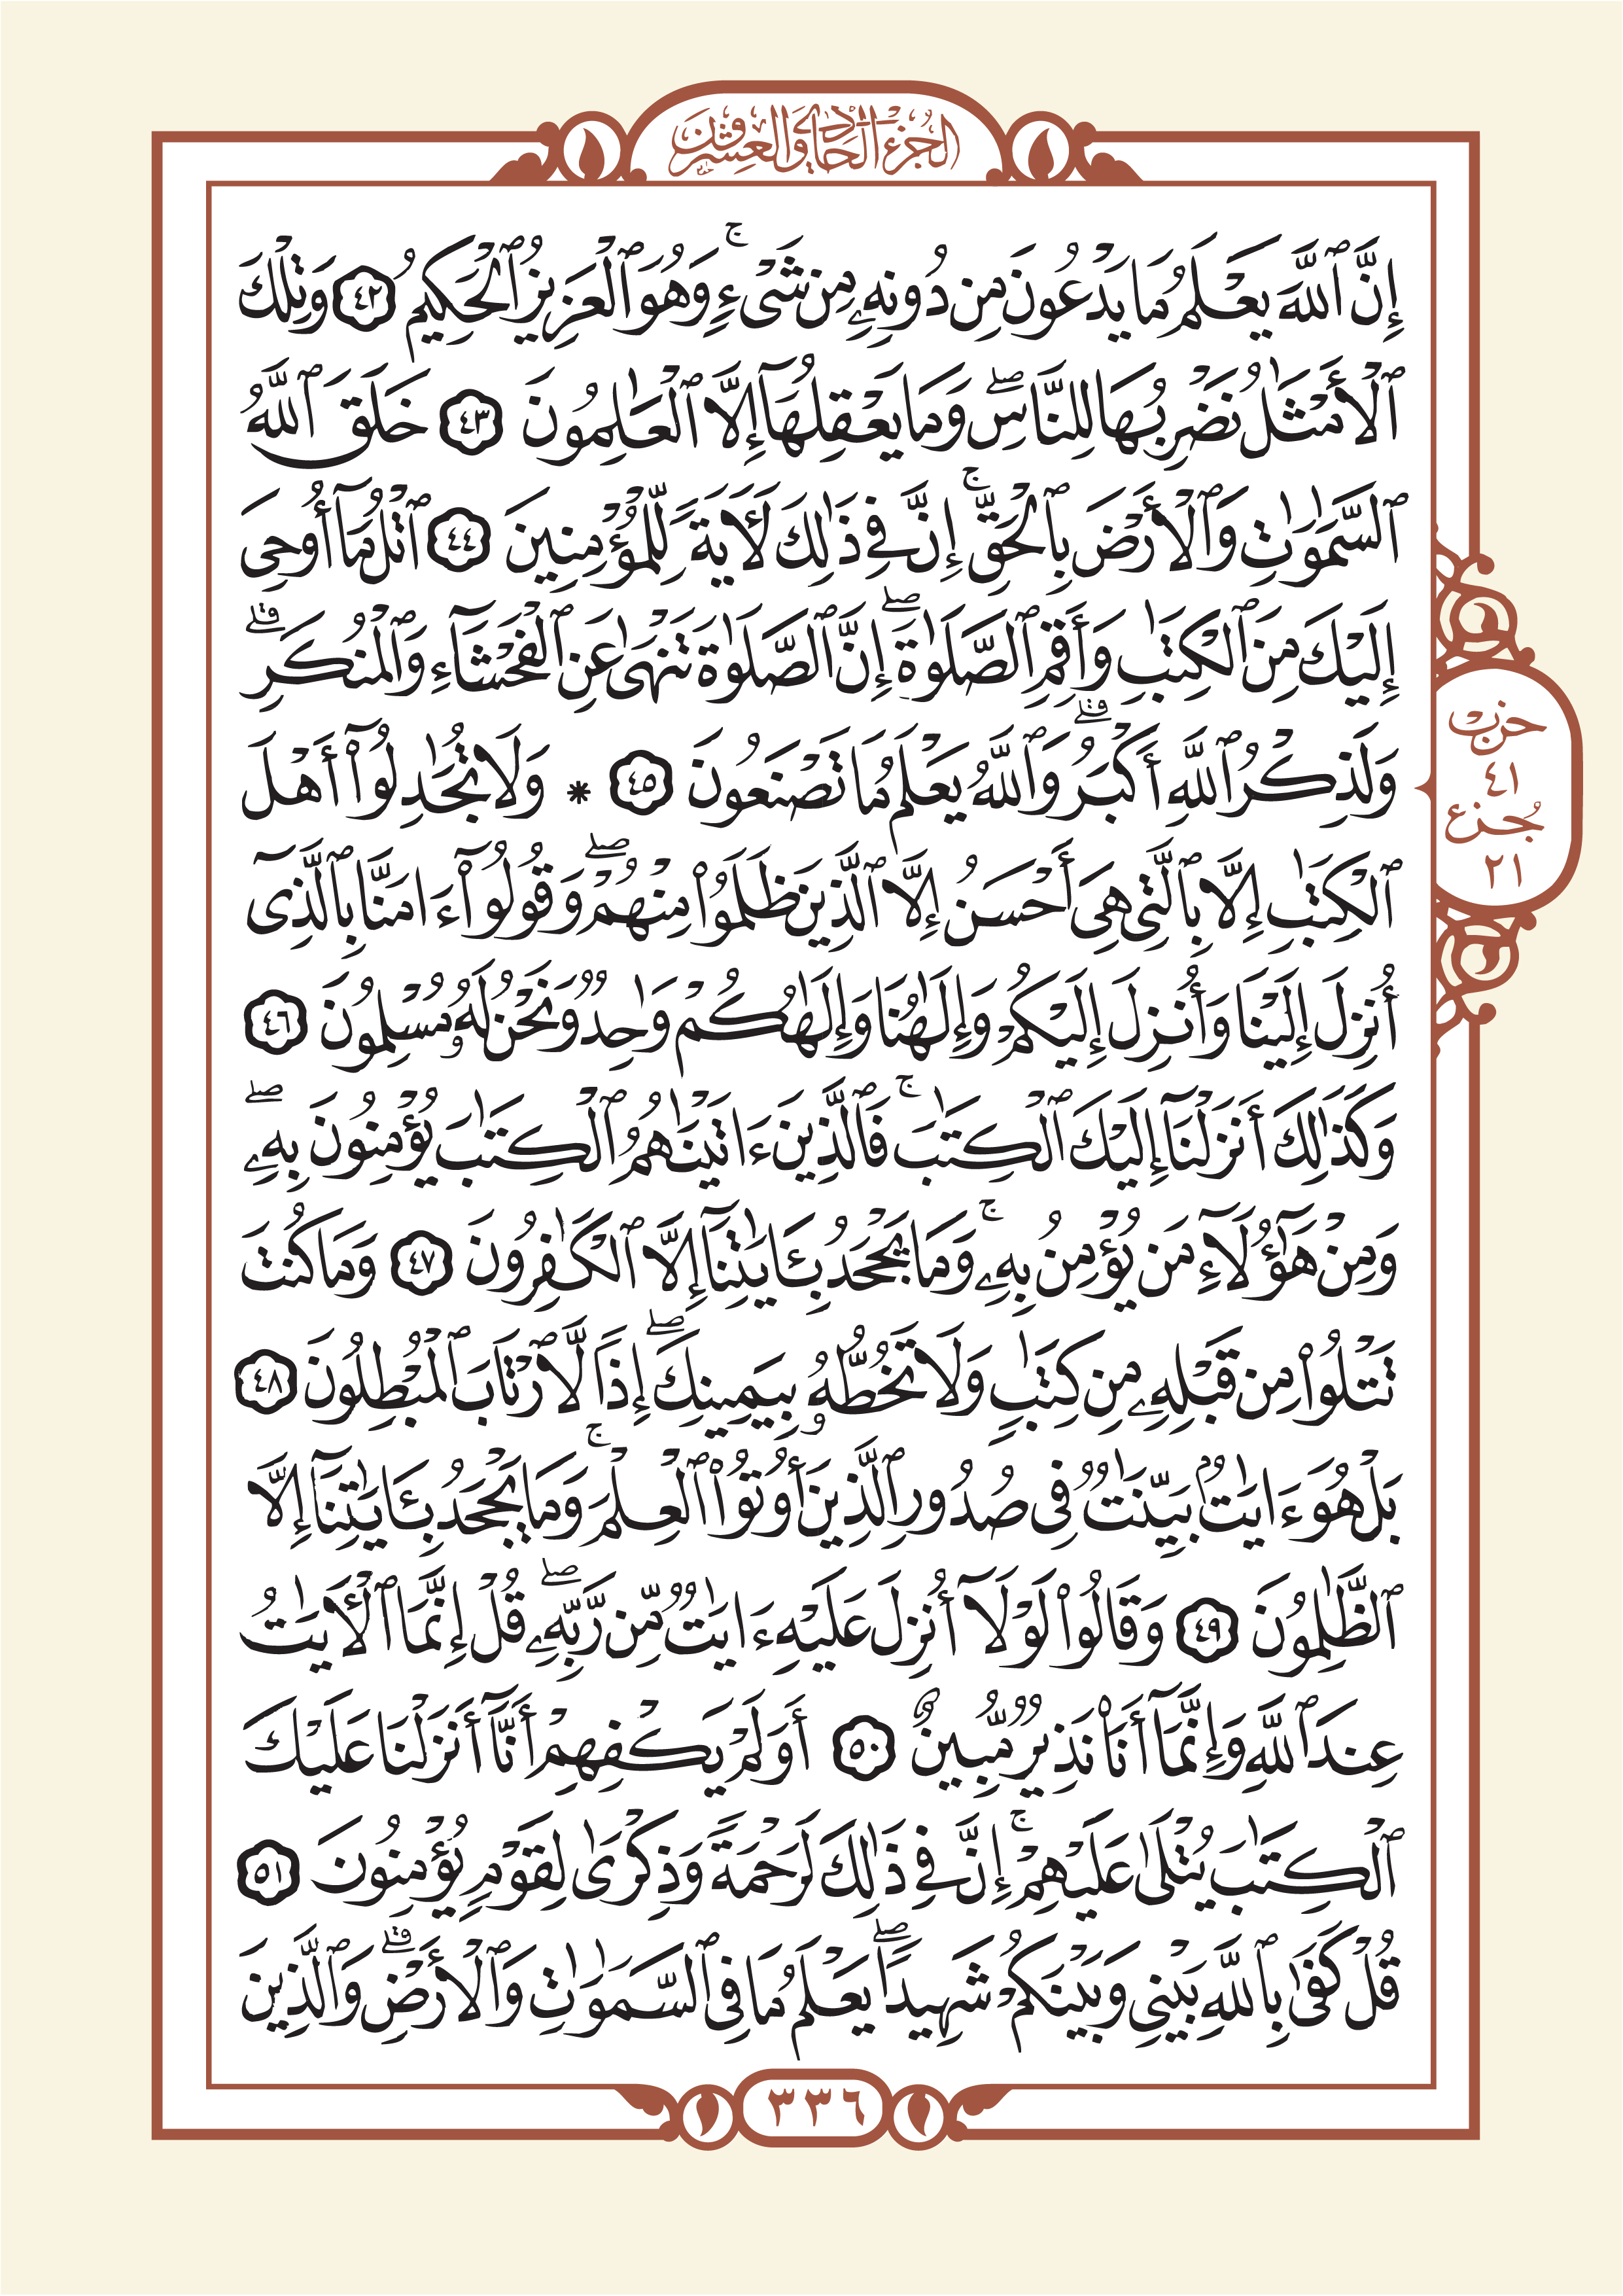 الجزء الحادي والعشرون
إِنَّ ٱللَّهَ يَعْلَمُ مَا يَدْعُونَ مِن دُونِهِۦ مِن شَىْءٍۚ وَهُوَ ٱلْعَزِيزُ ٱلْحَكِيمُ ٤٢ وَتِلْكَ
ٱلْأَمْثَـٰلُ نَضْرِبُهَا لِلنَّاسِۖ وَمَا يَعْقِلُهَآ إِلَّا ٱلْعَـٰلِمُونَ ٤٣ خَلَقَ ٱللَّهُ
ٱلسَّمَـٰوَٰتِ وَٱلْأَرْضَ بِٱلْحَقِّۚ إِنَّ فِى ذَٰلِكَ لَـَٔايَةً لِّلْمُؤْمِنِينَ ٤٤ ٱتْلُ مَآ أُوحِىَ
إِلَيْكَ مِنَ ٱلْكِتَـٰبِ وَأَقِمِ ٱلصَّلَوٰةَۖ إِنَّ ٱلصَّلَوٰةَ تَنْهَىٰ عَنِ ٱلْفَحْشَآءِ وَٱلْمُنكَرِۗ
وَلَذِكْرُ ٱللَّهِ أَكْبَرُۗ وَٱللَّهُ يَعْلَمُ مَا تَصْنَعُونَ ٤٥ * وَلَا تُجَـٰدِلُوٓا۟ أَهْلَ
ٱلْكِتَـٰبِ إِلَّا بِٱلَّتِى هِىَ أَحْسَنُ إِلَّا ٱلَّذِينَ ظَلَمُوا۟ مِنْهُمْۖ وَقُولُوٓا۟ ءَامَنَّا بِٱلَّذِىٓ
أُنزِلَ إِلَيْنَا وَأُنزِلَ إِلَيْكُمْ وَإِلَـٰهُنَا وَإِلَـٰهُكُمْ وَٰحِدٌ وَنَحْنُ لَهُۥ مُسْلِمُونَ ٤٦
وَكَذَٰلِكَ أَنزَلْنَآ إِلَيْكَ ٱلْكِتَـٰبَۚ فَٱلَّذِينَ ءَاتَيْنَـٰهُمُ ٱلْكِتَـٰبَ يُؤْمِنُونَ بِهِۦۖ
وَمِنْ هَـٰٓؤُلَآءِ مَن يُؤْمِنُ بِهِۦۚ وَمَا يَجْحَدُ بِـَٔايَـٰتِنَآ إِلَّا ٱلْكَـٰفِرُونَ ٤٧ وَمَا كُنتَ
تَتْلُوا۟ مِن قَبْلِهِۦ مِن كِتَـٰبٍ وَلَا تَخُطُّهُۥ بِيَمِينِكَۖ إِذًا لَّٱرْتَابَ ٱلْمُبْطِلُونَ ٤٨
بَلْ هُوَ ءَايَـٰتٌۢ بَيِّنَـٰتٌ فِى صُدُورِ ٱلَّذِينَ أُوتُوا۟ ٱلْعِلْمَۚ وَمَا يَجْحَدُ بِـَٔايَـٰتِنَآ إِلَّا
ٱلظَّـٰلِمُونَ ٤٩ وَقَالُوا۟ لَوْلَآ أُنزِلَ عَلَيْهِ ءَايَـٰتٌ مِّن رَّبِّهِۦۖ قُلْ إِنَّمَا ٱلْـَٔايَـٰتُ
عِندَ ٱللَّهِ وَإِنَّمَآ أَنَا۠ نَذِيرٌ مُّبِينٌ ٥٠ أَوَلَمْ يَكْفِهِمْ أَنَّآ أَنزَلْنَا عَلَيْكَ
ٱلْكِتَـٰبَ يُتْلَىٰ عَلَيْهِمْۚ إِنَّ فِى ذَٰلِكَ لَرَحْمَةً وَذِكْرَىٰ لِقَوْمٍ يُؤْمِنُونَ ٥١
قُلْ كَفَىٰ بِٱللَّهِ بَيْنِى وَبَيْنَكُمْ شَهِيدًاۖ يَعْلَمُ مَا فِى ٱلسَّمَـٰوَٰتِ وَٱلْأَرْضِۗ وَٱلَّذِينَ
حزب
٤١
جزء
٢١
٣٣٦